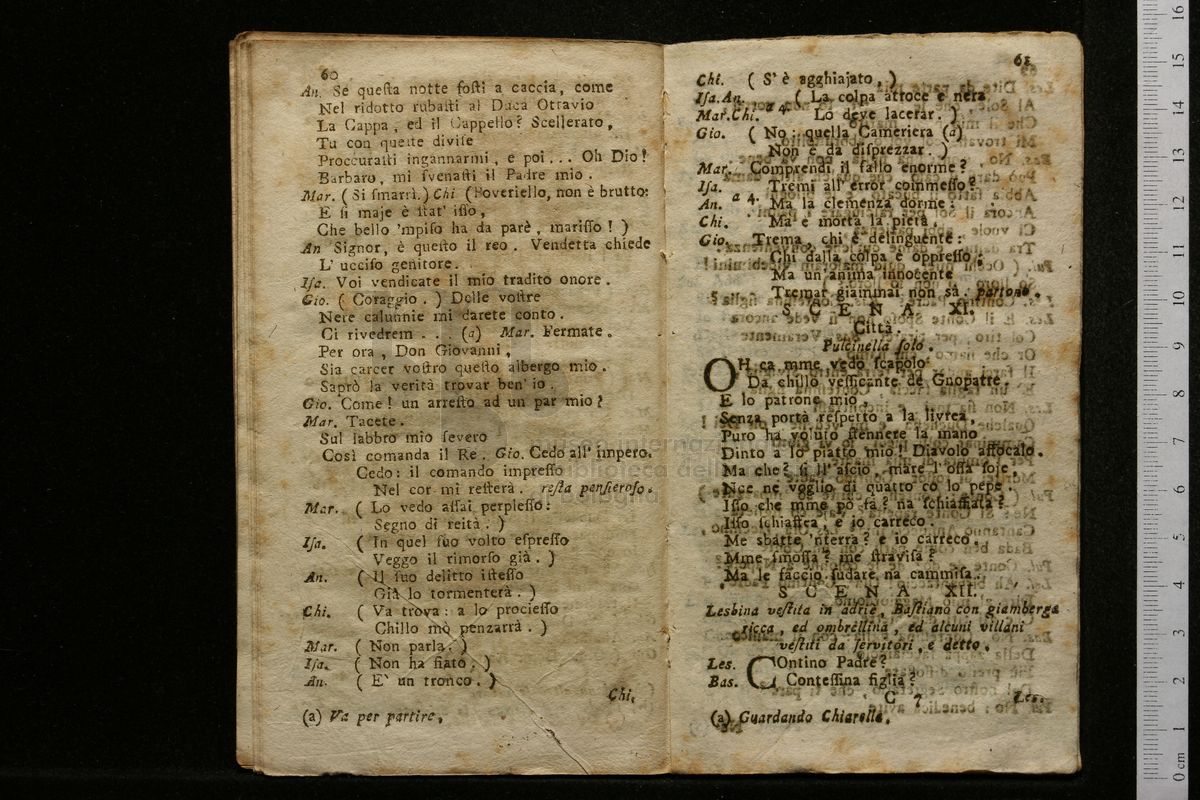 60
An. Se queſta notte foſti a caccia, come
Nel ridotto rubaſti al Duca Ottavio
La Cappa, ed il Cappello? Scellerato,
Tu con queſte diviſe
Proccuraſti ingannarmi, e poi... Oh Dio!
Barbaro, mi ſvenaſti il Padre mio.
Mar. (Si ſmarrì.) Chi (Poveriello, non è brutto:
E ſi maje è ſtat' iſſo,
Che bello 'mpiſo ha da parè, mariſſo!)
An Signor, è queſto il reo. Vendetta chiede
L' ucciſo genitore.
Iſa. Voi vendicate il mio tradito onore.
Gio. (Coraggio.) Delle voſtre
Nere calunnie mi darete conto.
Ci rivedrem ... (a) Mar. Fermate.
Per ora, Don Giovanni,
Sia carcer voſtro queſto albergo mio.
Saprò la verità trovar ben' io.
Gio. Come! un arreſto ad un par mio?
Mar. Tacete.
Sul labbro mio ſevero
Così comanda il Re. Gio. Cedo all' impero.
Cedo: il comando impreſſo
Nel cor mi reſterà. reſta penſieroſo.
Mar. (Lo vedo aſſai perpleſſo:
Segno di reità.)
Iſa. (In quel ſuo volto eſpreſſo
Veggo il rimorſo già.)
An. (Il ſuo delitto iſteſſo
Già lo tormenterà.)
Chi. (Va trova: a lo procieſſo
Chillo mò penzarrà.)
Mar. (Non parla.)
Iſa. (Non ha fiato.)
An. (E' un tronco.)
Chi.
(a) Va per partire.
61
Chi. (S' è agghiajato.)
Iſa.An. a 4. (La colpa atroce e nera
Mar.Chi. Lo deve lacerar.)
Gio. (No: quella Cameriera (a)
Non è da diſprezzar.)
Mar. Comprendi il fallo enorme?
Iſa. Tremi all' error commeſſo?
An. a 4. Ma la clemenza dorme:
Chi. Ma è morta la pietà.
Gio. Trema, chi è delinguente:
Chi dalla colpa è oppreſſo;
Ma un' anima innocente
Tremar giammai non sa. partono.
SCENA XI.
Città.
Pulcinella ſolo.
OH ca mme vedo ſcapolo
Da chillo veſſicante de Gnopatre.
E lo patrone mio,
Senza portà reſpetto a la livrea,
Puro ha voluto ſtennere la mano
Dinto a lo piatto mio! Diavolo affocalo.
Ma che? ſi ll' aſcio, mare l' oſſa ſoje,
Nce ne voglio di quatto co lo pepe.
Iſſo che mme pò fà? na ſchiaffiata?
Iſſo ſchiaffea, e io carreco.
Me sbatte 'nterra? e io carreco.
Mme ſmoſſa? me ſtraviſa?
Ma le faccio ſudare na cammiſa.
SCENA XII.
Lesbina veſtita in adriè, Baſtiano con giamberga
ricca, ed ombrellina, ed alcuni villani
veſtiti da ſervitori, e detto.
Les. COntino Padre?
Bas. Conteſſina figlia?
C 7 Les.
(a) Guardando Chiarella.